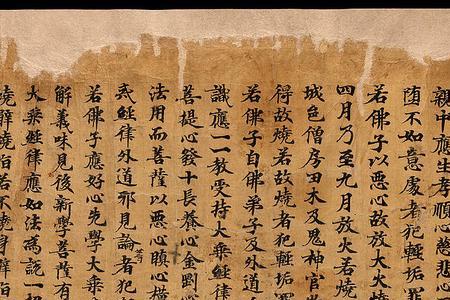 親中應生孝順心慈悲心
堕不如意處者犯輕垢罪
若佛子以惡心故放大火燒
四月乃至九月放火若燒
城邑僧房田木及鬼神官
得故燒若故燒者犯輕垢罪
若佛子自佛弟子及外道
識應一一教受持大乘經律
菩提心發十長養心金剛
法用而菩薩以惡心瞋心橫
戒經律外道邪見論等者犯
若佛子應好心先學大乘
解義味見後新學菩薩有
大乘經律應如法為說一切
燒臂燒指若不燒身臂指